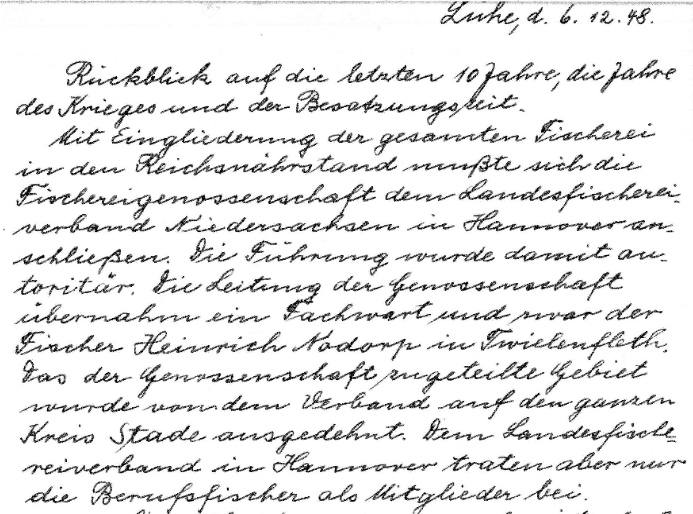 Lühe, d. 6. 12. 48.
Rückblick auf die letzten 10 Jahre, die Jahre
des Krieges und der Besatzungszeit.
Mit Eingliederung der gesamten Fischerei
in den Reichsnährstand mußte sich die
Fischereigenossenschaft dem Landesfischerei-
verband Niedersachsen in Hannover an-
schließen. Die Führung wurde damit au-
toritär. Die Leitung der Genossenschaft
übernahm ein Fachwart und zwar der
Fischer Heinrich Nodorp in Twielenfleth.
Das der Genossenschaft zugeteilte Gebiet
wurde von dem Verband auf den ganzen
Kreis Stade ausgedehnt. Dem Landesfische-
reiverband in Hannover traten aber nur
die Berufsfischer als Mitglieder bei.